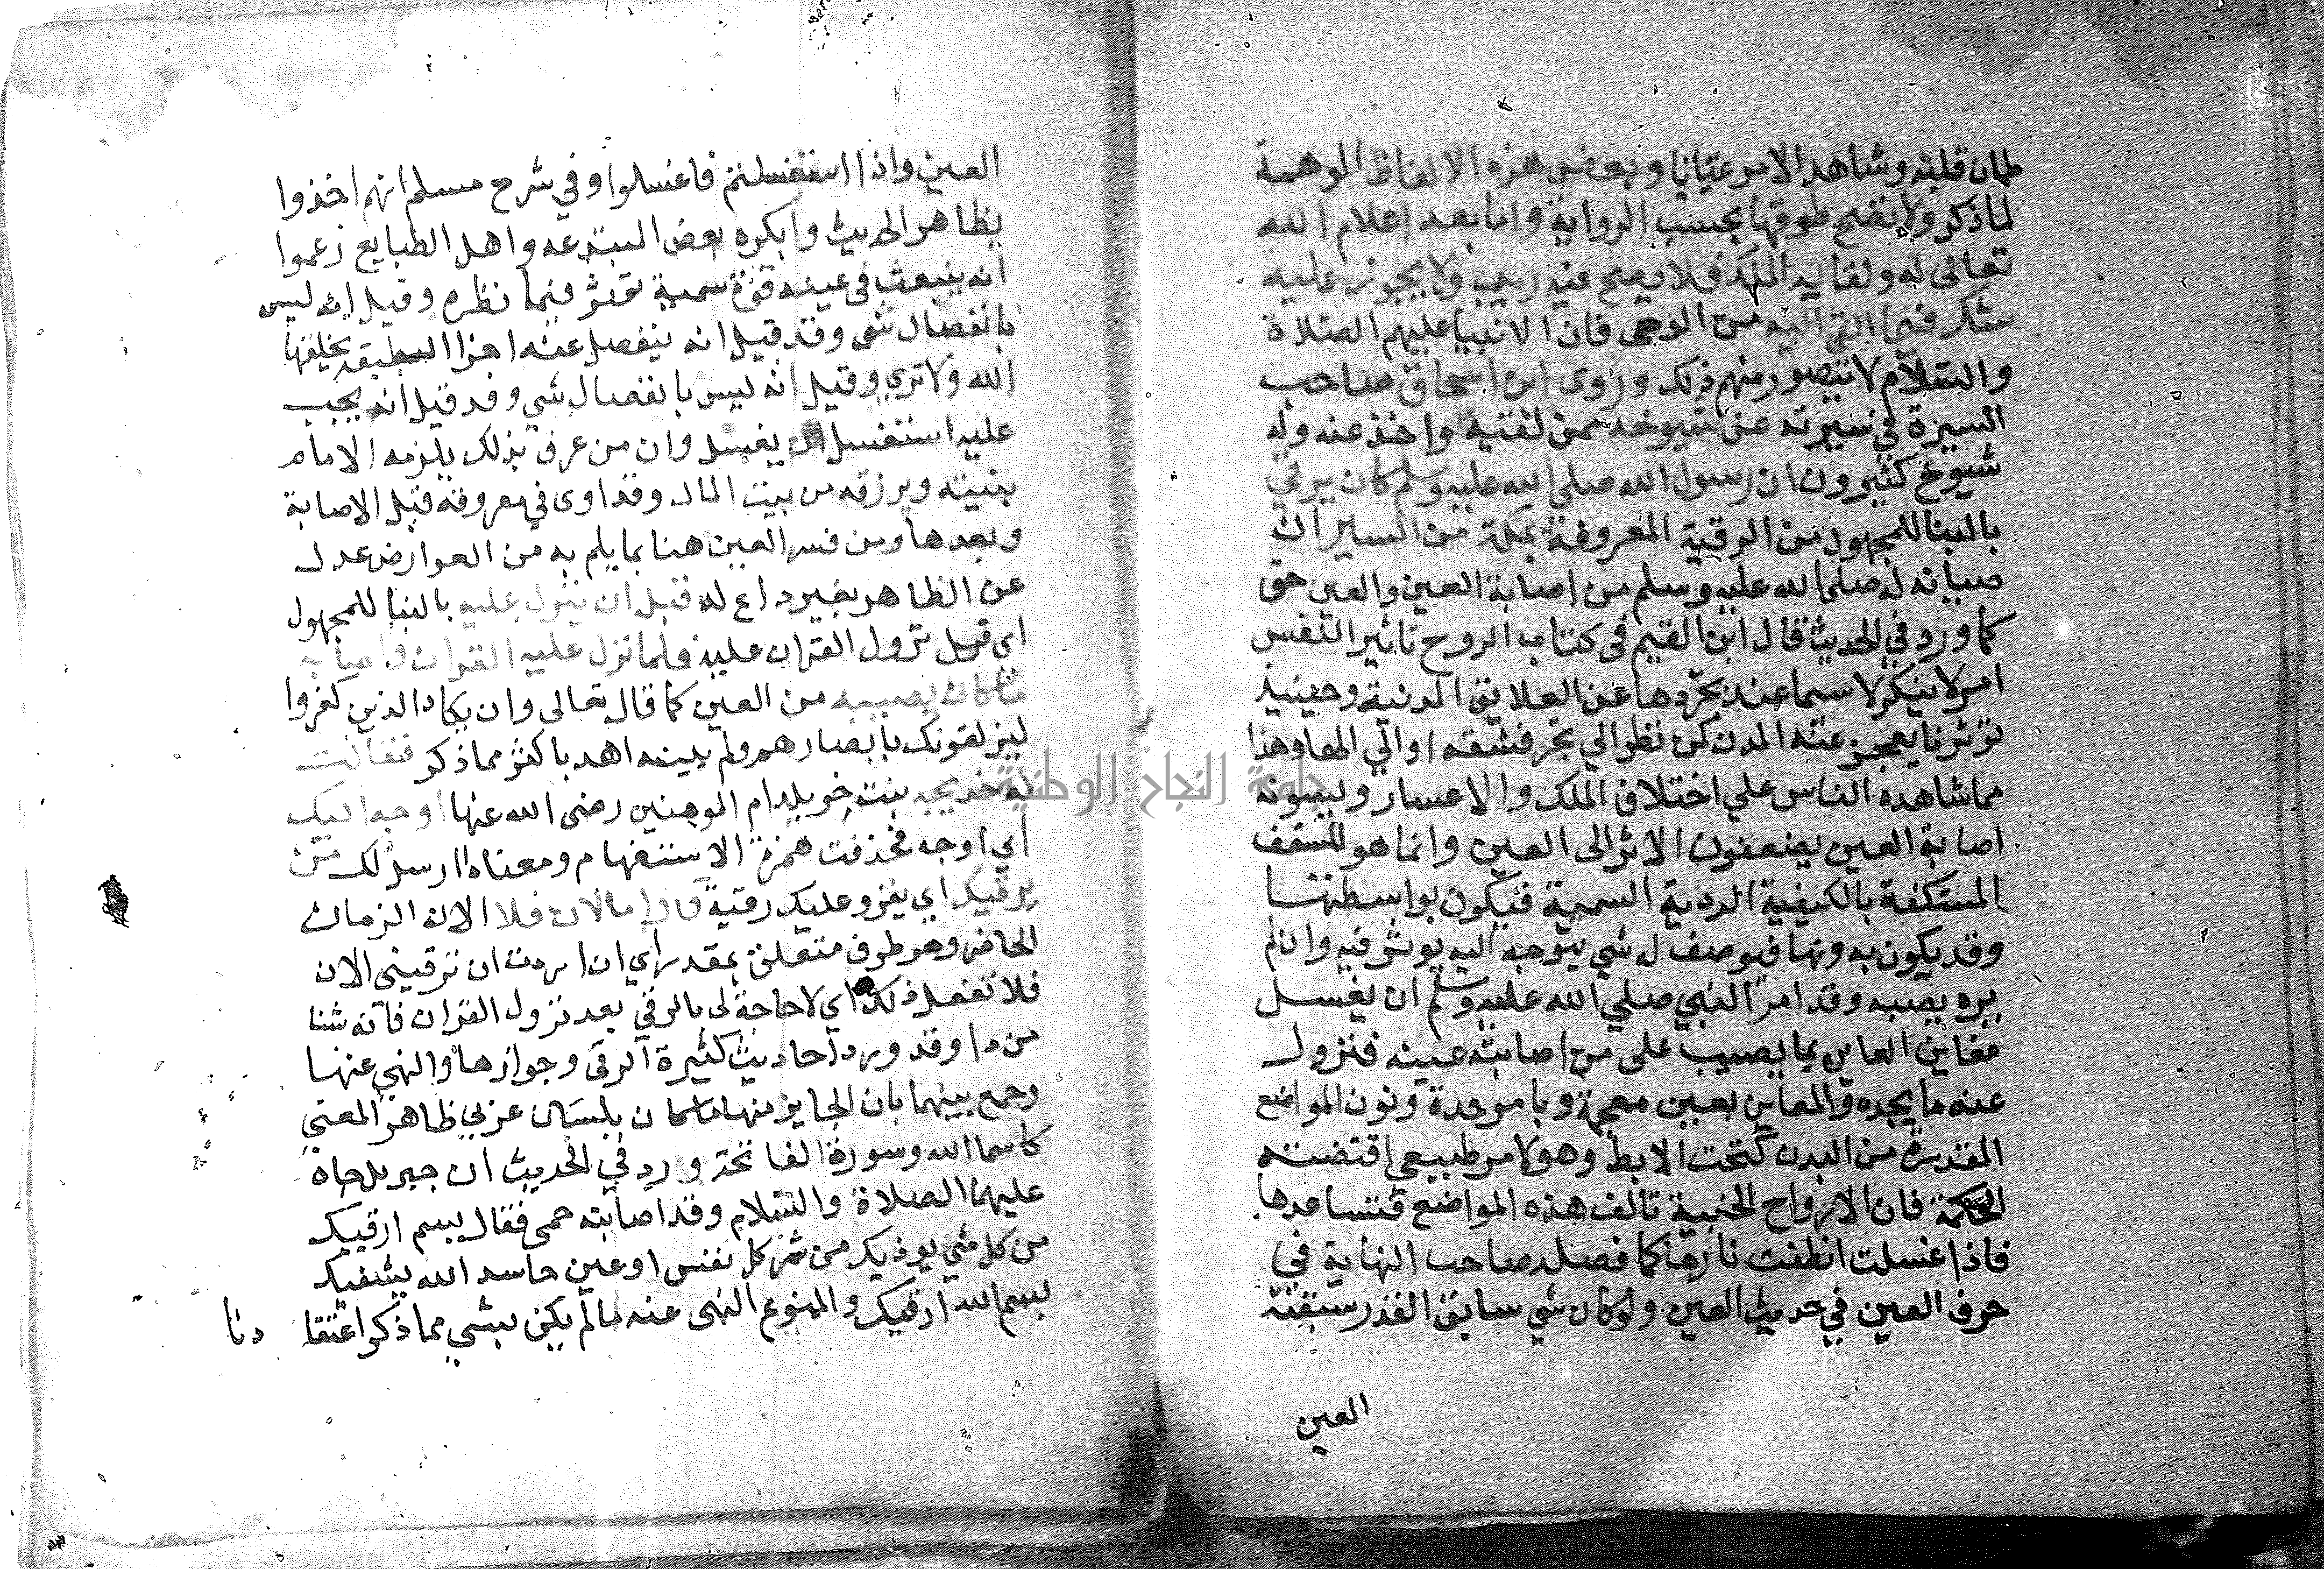 طمان قلبه وشاهد الامر عيانا وبعض هذه الالفاظ الوهمة
لما ذكر ولا يقضح طوقها بحسب الرواية واما بعد اعلام الله
تعالى له ولقايه الملك فلا يصح فيه ريب ولا يجوز عليه
شك فيما القى اليه من الوحى فان الانبيا عليهم الصلاة
والسلام لا يتصور منهم ذلك وروى ابن اسحاق صاحب
السيرة في سيرته عن شيوخه ممن لقيه واخذ عنه وله
شيوخ كثيرون ان رسول الله صلى الله عليه وسلم كان يرقي
بالبنا للمجهول من الرقية المعروفة بمكة من السيران
صيانه له صلى الله عليه وسلم من اصابة العين والعين حق
كما ورد في الحديث قال ابن القيم في كتاب الروح تاثير النفس
امر لا ينكر لا سيما عند تجرّدها عن العلايق الدنية وحينيذ
توثر ما يعجز عنه البدن كمن نظر الي حجر فشقه او الي المها وهذا
مما شاهده الناس علي اختلاف الملك والاعسار وليسونه
اصابة العين يضعفون الاثر الى العين وانما هو للنفس
المتكفة بالكيفية الردية السمية فيكون بواسطتها
وقد يكون بدونها فيوصف له شي يتوجه اليه يوثر فيه وان لم
يره يصبه وقد امر النبي صلي الله عليه وسلم ان يغسل
مغابن العاين بما يصب على من اصابته عينه فنزول
عنه ما يجده والمغابن بغين معجمة وباموحدة ونون المواضع
المقذرة من البدن كتحت الابط وهو لامر طبيعي اقتضته
الحكمة فان الارواح الخبيثة تالف هذه المواضع فتساعدها
فاذا غسلت انطفت نارها كما فصله صاحب النهاية في
حرف العين في حديث العين ولو كان شي سابق القدر سبقته
العين
العين واذا استغسلتم فاغسلوا وفي شرح مسلم انهم اخذوا
بظاهر الحديث وانكره بعض المبتدعه واهل الطبايع زعموا
انه ينبعث في عينه قوة سمية توثر فيما نظره وقيل انه ليس
بانفصال شي وقد قيل انه ينفصل عنه اجزا لطيفه يخلقها
الله ولا تري وقيل انه ليس بانفصال شي وقد قيل انه يجب
عليه استغسل ان يغسل وان من عرف بذلك يلزمه الامام
بيته ويرزقه من بيت المال وقد اوى في معروفه قبل الاصابة
وبعدها ومن فسر العين هنا بما يلم به من العوارض عدل
عن الظاهر بغير داع له قبل ان ينزل عليه بالبنا للمجهول
اي قبل نزول القران عليه فلما نزل عليه القران واصابه
ما كان يصيبه من العين كما قال تعالى وان يكاد الذين كفروا
ليزلقونك بابصارهم ولم يبينه اهد باكثر مما ذكر فقالت
له خديجه بنت خويلد ام المومنين رضى الله عنها اوجه اليك
اي اوجه فحذفت همزة الاستفهام ومعناه اارسل لك من
يرقيك اي يغزو عليك رقية قال اما الان فلا الان الزمان
الحاضر وهو ظرف متعلق بمقدر اي ان اردت ان ترقيني الان
فلا تفعل ذلك اي لا حاجة لى بالرقي بعد نزول القران فانه شفا
من دا وقد ورد احاديث كثيرة الرقى وجوازها والنهي عنها
وجمع بينهما بان الجايز منها ما كان بلسان عربي ظاهر المعني
كاسما الله وسورة الفاتحة ورد في الحديث ان جبريل جاه
عليهما الصلاة والسلام وقد اصابته حمى فقال بسم ارقيك
من كل شي يوذيك من شر كل نفس او عين حاسد الله يشفيك
بسم الله ارقيك والمنوع النهى عنه ما لم يكن بشي مما ذكر اعتقا دنا
جامعة النجاح الوطنية